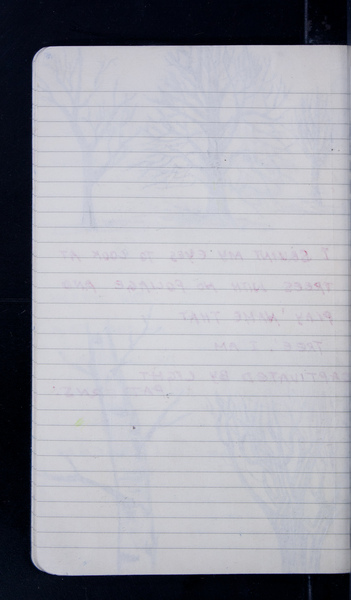 I SQUINT MY EYES TO LOOK AT
TREES WITH NO FOLIAGE AND
PLAY 'NAME THAT
TREE. I AM
CAPTIVATED BY LIGHT